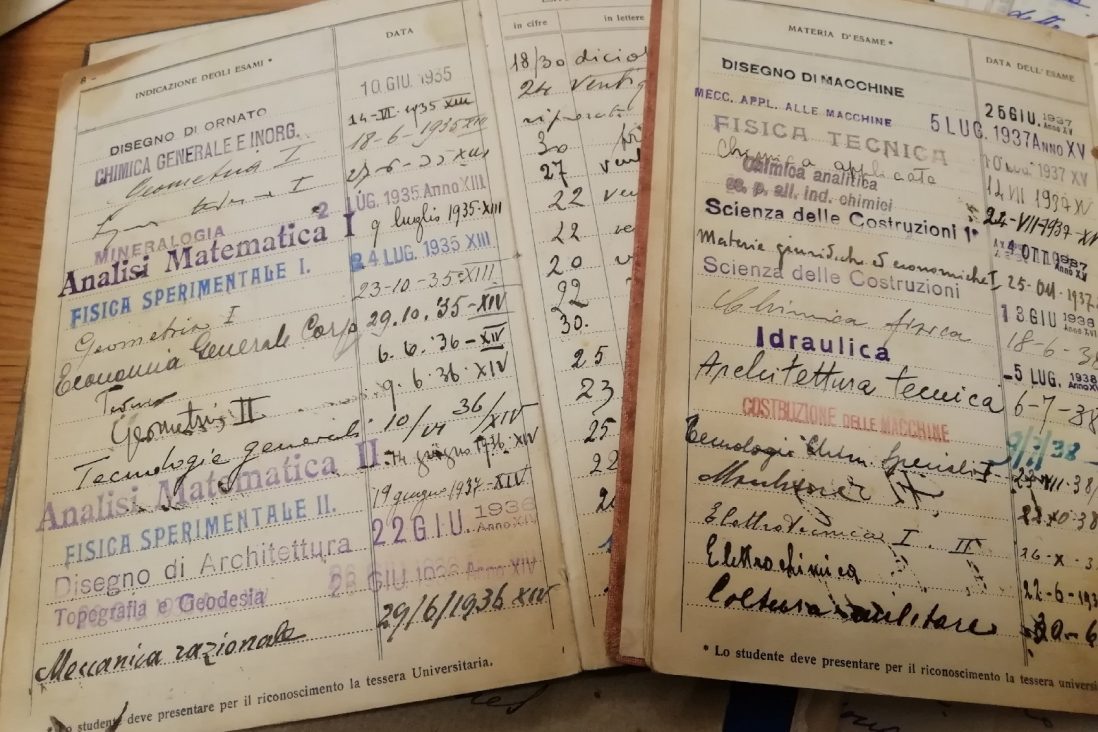 8 -
INDICAZIONE DEGLI ESAMI *
DATA
in cifre
in lettere
DISEGNO DI ORNATO
10 GIU. 1935
18/30
CHIMICA GENERALE E INORG.
14-VI-1935 XIII
24
Geometria I
18-6-1935 XIII
I
27-6-35 XIII
30
MINERALOGIA
2 LUG. 1935 Anno XIII
27
Analisi Matematica I
9 luglio 1935-XIII
22
FISICA SPERIMENTALE I.
24 LUG. 1935 XIII
22
Geometria I
23-10-35 XIII
20
Economia Generale Corp
29.10.35-XIV
22
6.6.'36-XIV
30.
Geometria II
9.6.36.XIV
25
Tecnologie generali
10/VI 36/XIV
23
Analisi Matematica II
14 giugno 1936. XIV
25
FISICA SPERIMENTALE II.
19 giugno 1937-XIV
22
Disegno di Architettura
22 GIU. 1936 Anno XIV
Topografia e Geodesia
GIU 1936 Anno XIV
Meccanica razionale
29/6/1936 XIV
* Lo studente deve presentare per il riconoscimento la tessera Universitaria.
MATERIA D'ESAME *
DATA DELL'ESAME
DISEGNO DI MACCHINE
26 GIU. 1937 Anno XV
MECC. APPL. ALLE MACCHINE
5 LUG. 1937 Anno XV
FISICA TECNICA
1937 XV
Chimica applicata
12 VII 1937 XV
Chimica analitica
co. p. all. ind. chimici
24-VII-1937-XV
Scienza delle Costruzioni 1°
4 OTT. 1937 Anno XV
Materie giuridiche ed economiche I
25-Ott-1937
Scienza delle Costruzioni
13 GIU 1938 Anno XVI
Chimica fisica
18-6-38
Idraulica
-5 LUG. 1938 Anno XVI
Architettura tecnica
6-7-38
COSTRUZIONE DELLE MACCHINE
9/7/38
Tecnologie Chim Speciali I
VII-38
Elettrotecnica I. II
26-X-3
Elettrochimica
22-6-193
Coltura militare
* Lo studente deve presentare per il riconoscimento la tessera universi